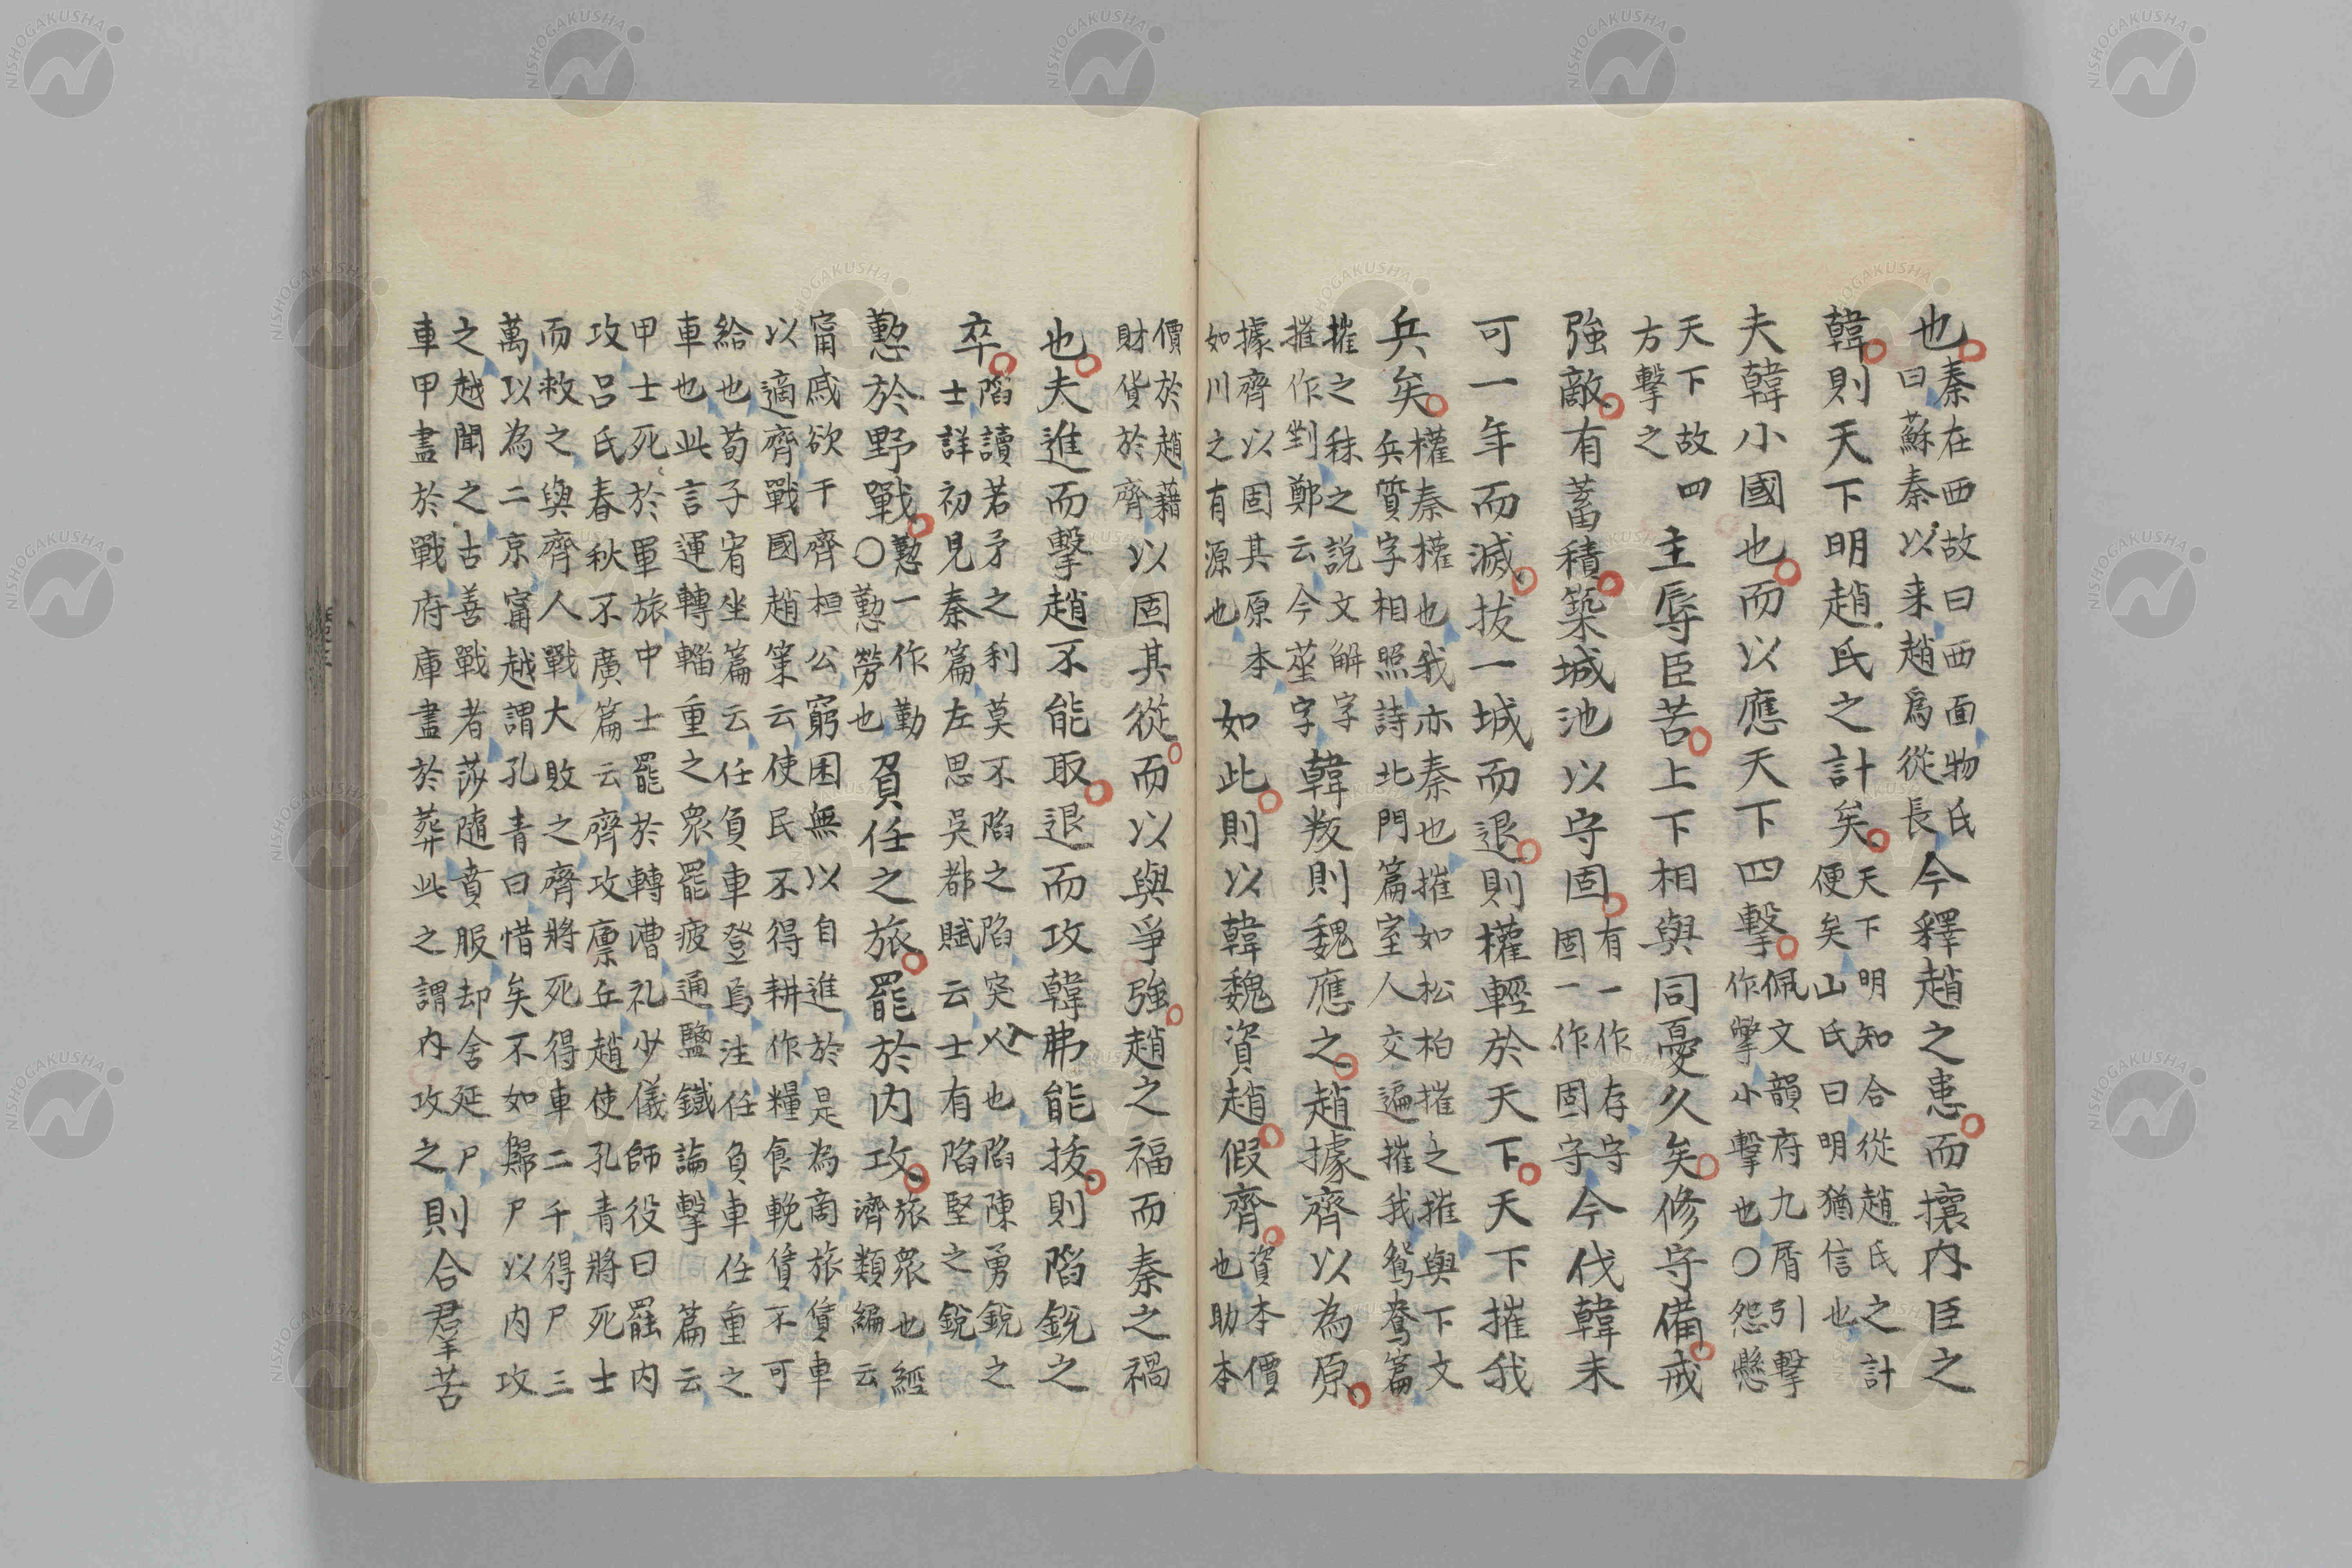 也
秦在西故曰西面物氏
曰蘇秦以来趙爲從長
今釋趙之患而攘内臣之
韓則天下明趙氏之計矣
天下明知合從趙氏之計
便矣山氏曰明猶信也
夫韓小國也而以應天下四擊
佩文韻府九屑引擊
作撆小擊也〇怨懸
天下故四
方擊之
主辱臣苦上下相與同憂久矣修守備戒
強敵有蓄積築城池以守固
有一作存守
固一作固守
今伐韓未
可一年而滅拔一城而退則權輕於天下天下摧我
兵矣
權秦權也我亦秦也摧如松柏摧之摧與下文
兵質字相照詩北門篇室人交遍摧我鴛鴦篇
摧之秣之説文解字
摧作剉鄭云今莝字
韓叛則魏應之趙據齊以為原
據齊以固其原本
如川之有源也
如此則以韓魏資趙假齊
資本價
也助本
價於趙藉
財貨於齊
以固其從而以與爭強趙之福而秦之禍
也夫進而擊趙不能取退而攻韓弗能拔則陷銳之
卒
陷讀若矛之利莫不陷之陷突以入也陷陳勇銳之
士詳初見秦篇左思吳都賦云士有陷堅之銳
懃於野戰
懃一作勤
〇懃勞也
負任之旅罷於内攻
旅衆也經
濟類編云
甯戚欲干齊桓公窮困無以自進於是為商旅賃車
以適齊戰國趙策云使民不得耕作糧食輓賃不可
給也荀子宥坐篇云任負車登焉注任負車任重之
車也此言運轉輜重之衆罷疲通鹽鐵論擊篇云
甲士死於軍旅中士罷於轉漕礼少儀師役曰罷内
攻呂氏春秋不廣篇云齊攻廩丘趙使孔青將死士
而救之與齊人戰大敗之齊將死得車二千得尸三
萬以為二京甯越謂孔青曰惜矣不如歸尸以内攻
之越聞之古善戰者莎隨賁服却舍延尸
車甲盡於戰府庫盡於葬此之謂内攻之
則合羣苦